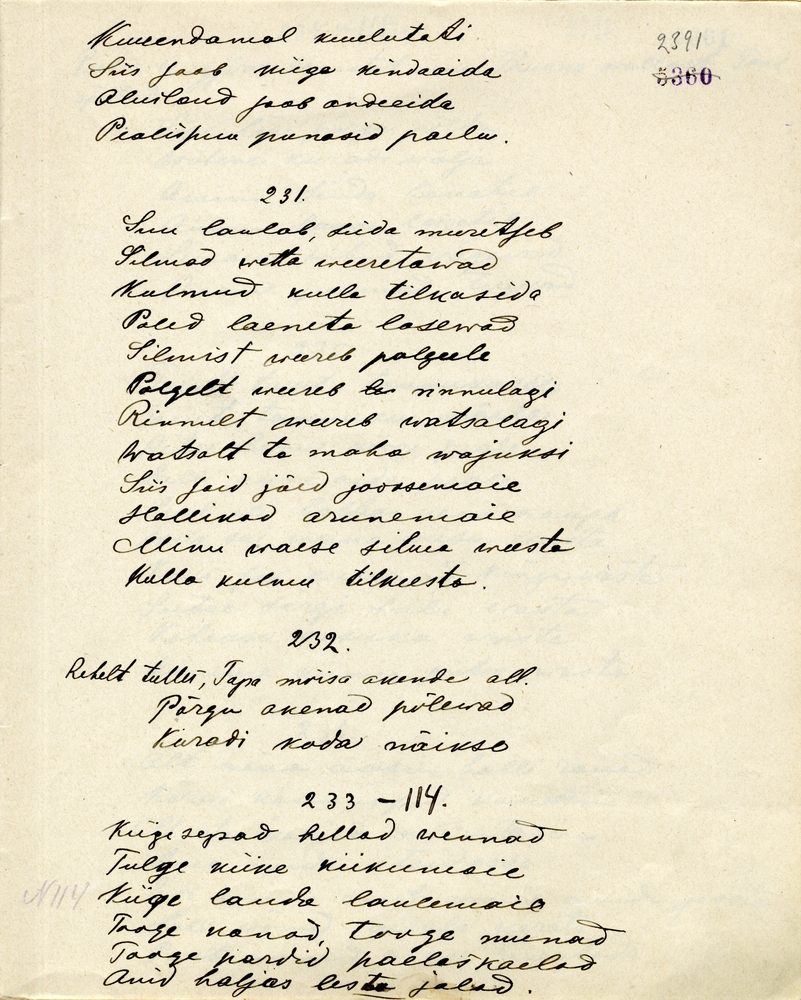 Kuuendamal kuulutati
2391
5360
Siis saab kiige kindaaida
Aluslaud saab andeeida
Pealispuu punasid paelu.
231.
Suu laulab, süda muretseb
Silmad wetta weeretawad
Kulmud kulla tilkasida
Paled laeneta lasewad
Silmist weereb palgeele
Palgelt weereb rinnulagi
Rinnult weereb watsalagi
Watsalt ta maha wajuksi
Siis said jäed jooksemaie
Hallikad arunemaie
Minu waese silma weesta
Kulla kulmu tilkeesta.
232.
Rehelt tulles, Tapa mõisa akende all.
Põrgu akenad põlewad
Kuradi koda näikse
233 – 114.
Kiigesepad hellad wennad
Tulge kiike kiikumaie
N114
Kiige lauda laulemaie
Tooge kanad, tooge munad
Tooge pardid paelaskaelad
Anid haljas lesta jalad.